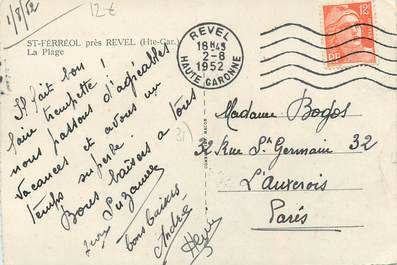 1/8/52
12 €
ST-FERRÉOL près REVEL (Hte-Gar.)
La Plage
REVEL
18H45
2-8
1952
HAUTE GARONNE
12F
Il fait bon !
faire trempette !
nous passons d'agréables
vacances et avons un
temps superbe.
Bons baisers à tous
Suzanne
bons baisers
André
Henri
Madame Bogos
32 Rue St Germain 32
L'auxerois
Paris